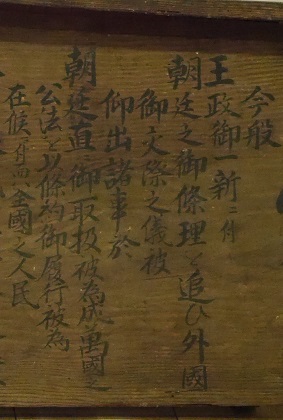 今般
王政御一新ニ付
朝廷之御條理ヲ追ヒ外國
御交際之儀被
仰出諸事於
朝廷直ニ御取扱被為成萬國之
公法ヲ以條約御履行被為
在候ニ付而ハ全國之人民